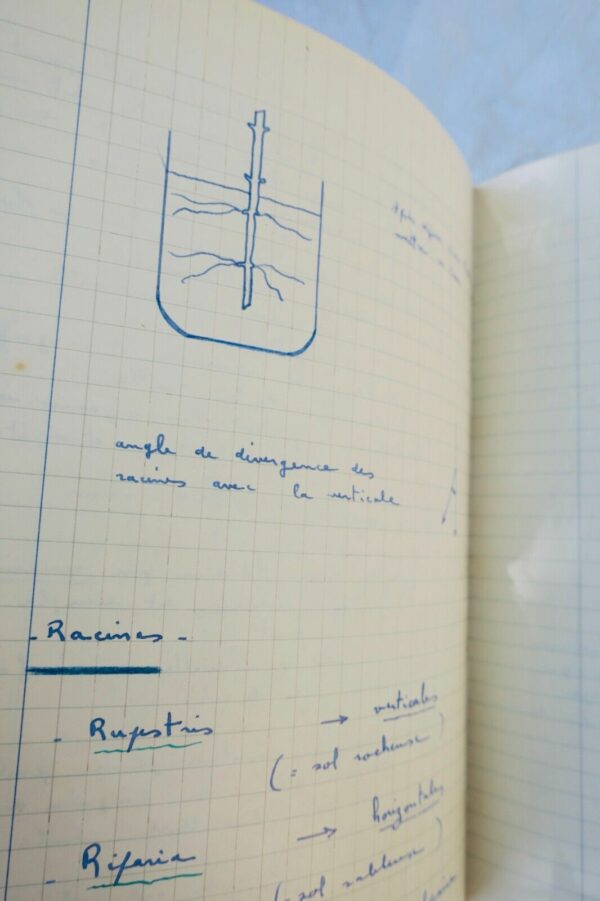 angle de divergence des
racines avec la verticale
- Racines -
- Rupestris → verticales
(= sol rocheuse)
- Riparia → horizontales
(= sol sableuse)